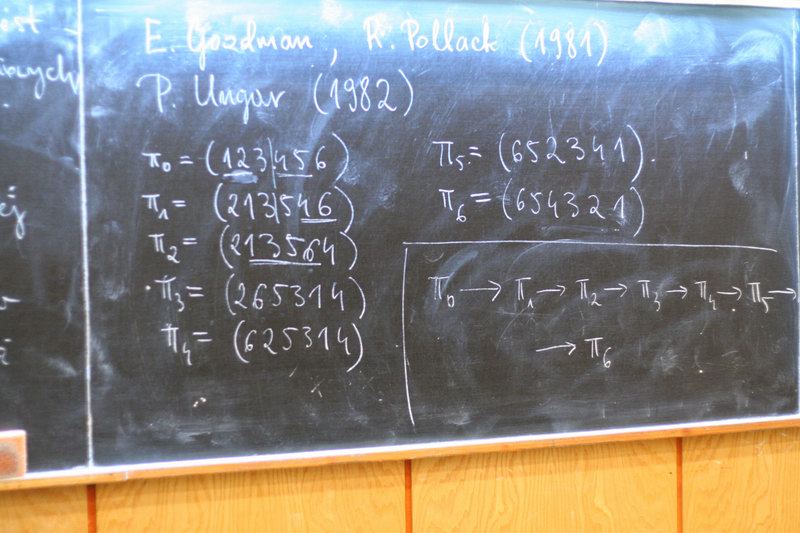 E. Goodman, R. Pollack (1981)
P. Ungar (1982)
π₀ = (123|456)
π₁ = (213|546)
π₂ = (213564)
π₃ = (265314)
π₄ = (625314)
π₅ = (652341).
π₆ = (654321)
π₀ → π₁ → π₂ → π₃ → π₄ → π₅ →
→ π₆